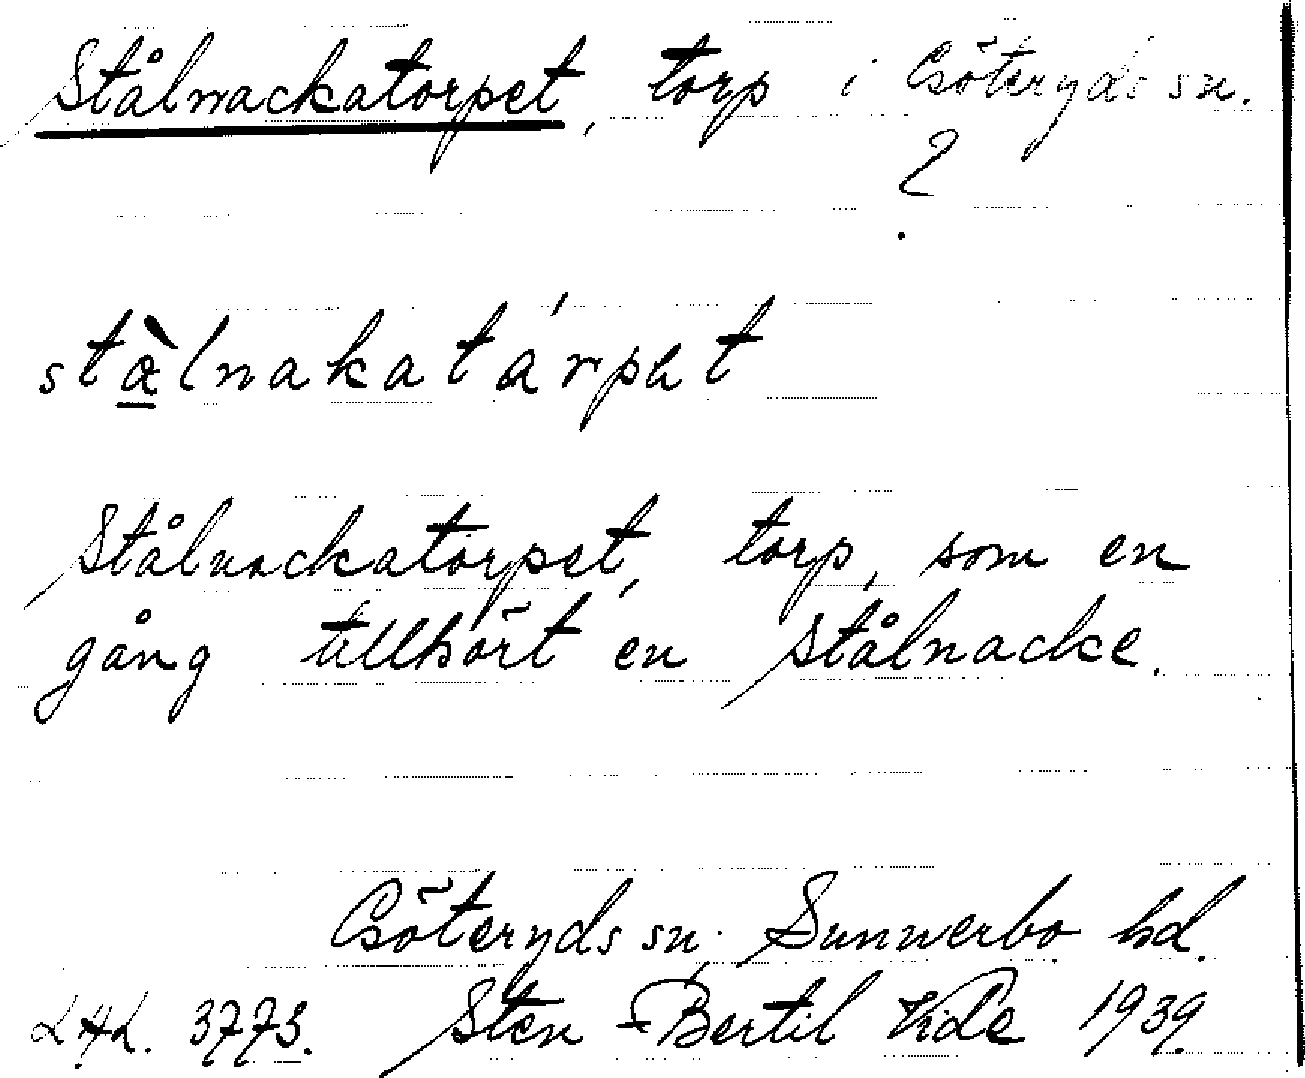 Stålnackatorpet, torp i Göteryds sn.
?
stæ̀lnakatárpət
Stålnackatorpet, torp, som en
gång tillhört en Stålnacke.
Göteryds sn. Sunnerbo hd.
LAL. 3773. Sten-Bertil Vide 1939.